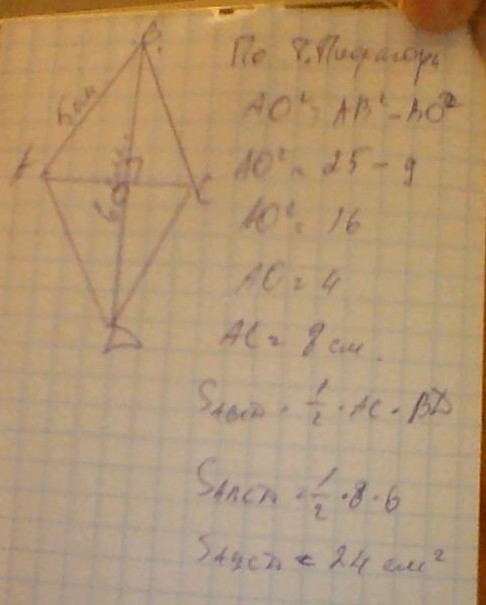 B
5 см
A
C
6 см
D
По т. Пифагора
AO² = AB² - BO²
AO² = 25 - 9
AO² = 16
AO = 4
AC = 8 см.
S ABCD = 1/2 · AC · BD
S ABCD = 1/2 · 8 · 6
S ABCD = 24 см²